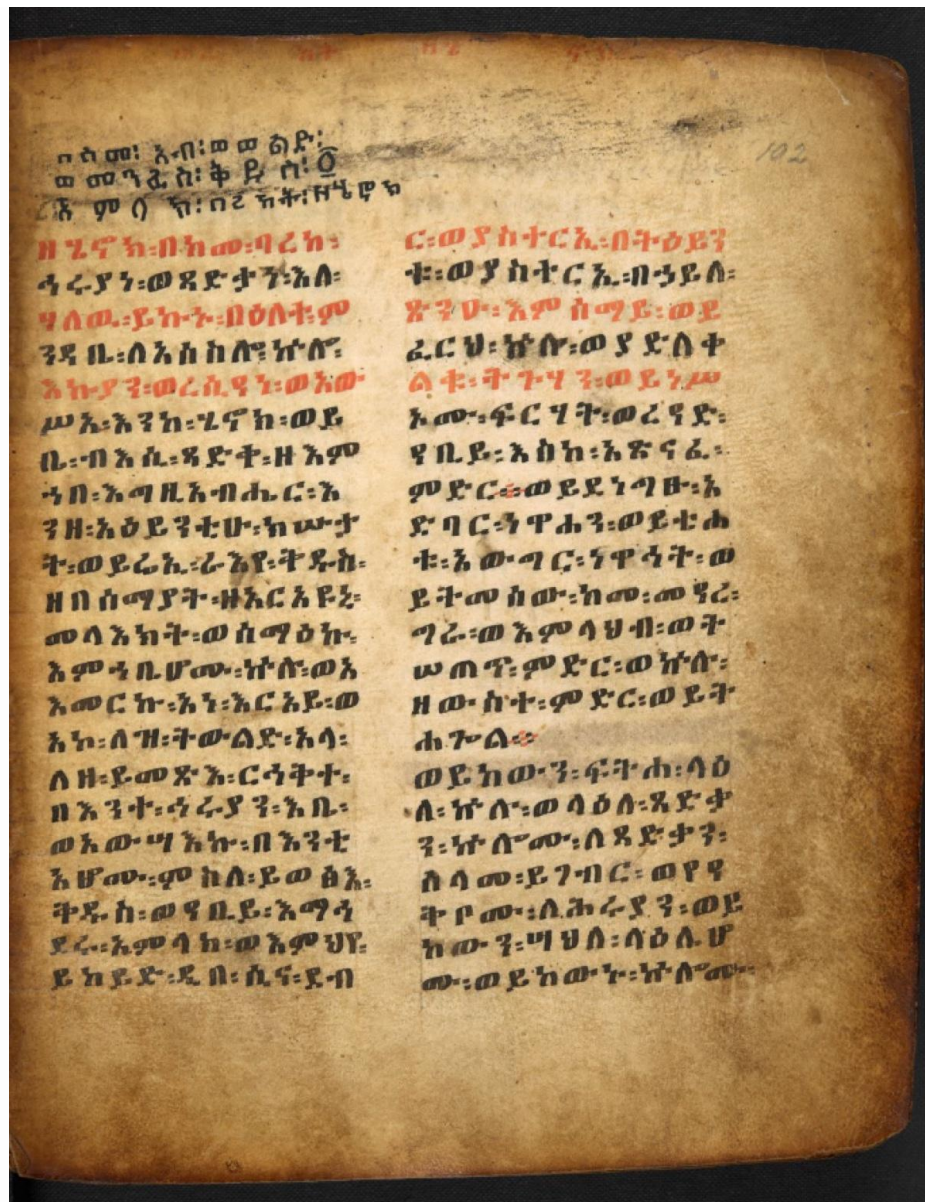 በስመ፡ አብ፡ ወወልድ፡
ወመንፈስ፡ ቅዱስ፡ ፩
አምላክ፡ በረከት፡ ዘሄኖክ
ዘሄኖክ፡በከመ፡ባረከ፡
ኅሩያነ፡ወጻድታን፡እለ፡
ሃለዉ፡ይኩኑ፡በዕለተ፡ም
ንዳቤ፡ለአስስሎ፡ኵሎ፡
እኩያን፡ወረሲዓን፡ወአው
ሥአ፡እንከ፡ሄኖክ፡ወይ
ቤ፡ብእሲ፡ጻድቅ፡ዘእም
ኀበ፡እግዚአብሔር፡እ
ንዘ፡አዕይንቲሁ፡ክሡታ
ት፡ወይሬኢ፡ራእየ፡ትዱስ፡
ዘበሰማያት፡ዘአርአዩኒ፡
መላእክት፡ወሰማዕኩ፡
እምኀቢሆሙ፡ኵሎ፡ወአ
እመርኩ፡አነ፡እርአይ፡ወ
አኮ፡ለዝ፡ትውልድ፡አላ፡
ለዘ፡ይመጽእ፡ርኁቅተ፡
በእንተ፡ኅሩያን፡እቤ፡
ወአውሣእኩ፡በእንቲ
አሆሙ፡ምስለ፡ይወፅእ፡
ትዱስ፡ወዓቢይ፡እማኅ
ደሩ፡አምላክ፡ወእምህየ፡
ይከይድ፡ዲበ፡ሲና፡ደብ
ር፡ወያስተርኢ፡በትዕይን
ቱ፡ወያስተርኢ፡በኃይለ፡
ጽንዑ፡እምሰማይ፡ወይ
ፈርህ፡ኵሉ፡ወያድለቀ
ልቁ፡ትጉሃን፡ወይነሥ
ኦሙ፡ፍርሃት፡ወረዓድ፡
ዓቢይ፡እስከ፡አጽናፈ፡
ምድር።ወይደነግፁ፡አ
ድባር፡ነዋሐን፡ወይቴሐ
ቱ፡አውግር፡ነዋኅት፡ወ
ይትመሰው፡ከመ፡መዓረ፡
ግራ፡ወእምላህብ፡ወት
ሠጠም፡ምድር፡ወኵሉ፡
ዘውስተ፡ምድር፡ወይት
ሐጐል።
ወይከውን፡ፍትሐ፡ላዕ
ለ፡ኵሉ፡ወላዕለ፡ጻድቃ
ን፡ኵሎሙ፡ለጻድቃን፡
ሰላመ፡ይገብር፡ወየዓ
ቅቦሙ፡ለሕሩያን፡ወይ
ከውን፡ሣህለ፡ላዕሌሆ
ሙ፡ወይከውኑ፡ኵሎሙ፡
102